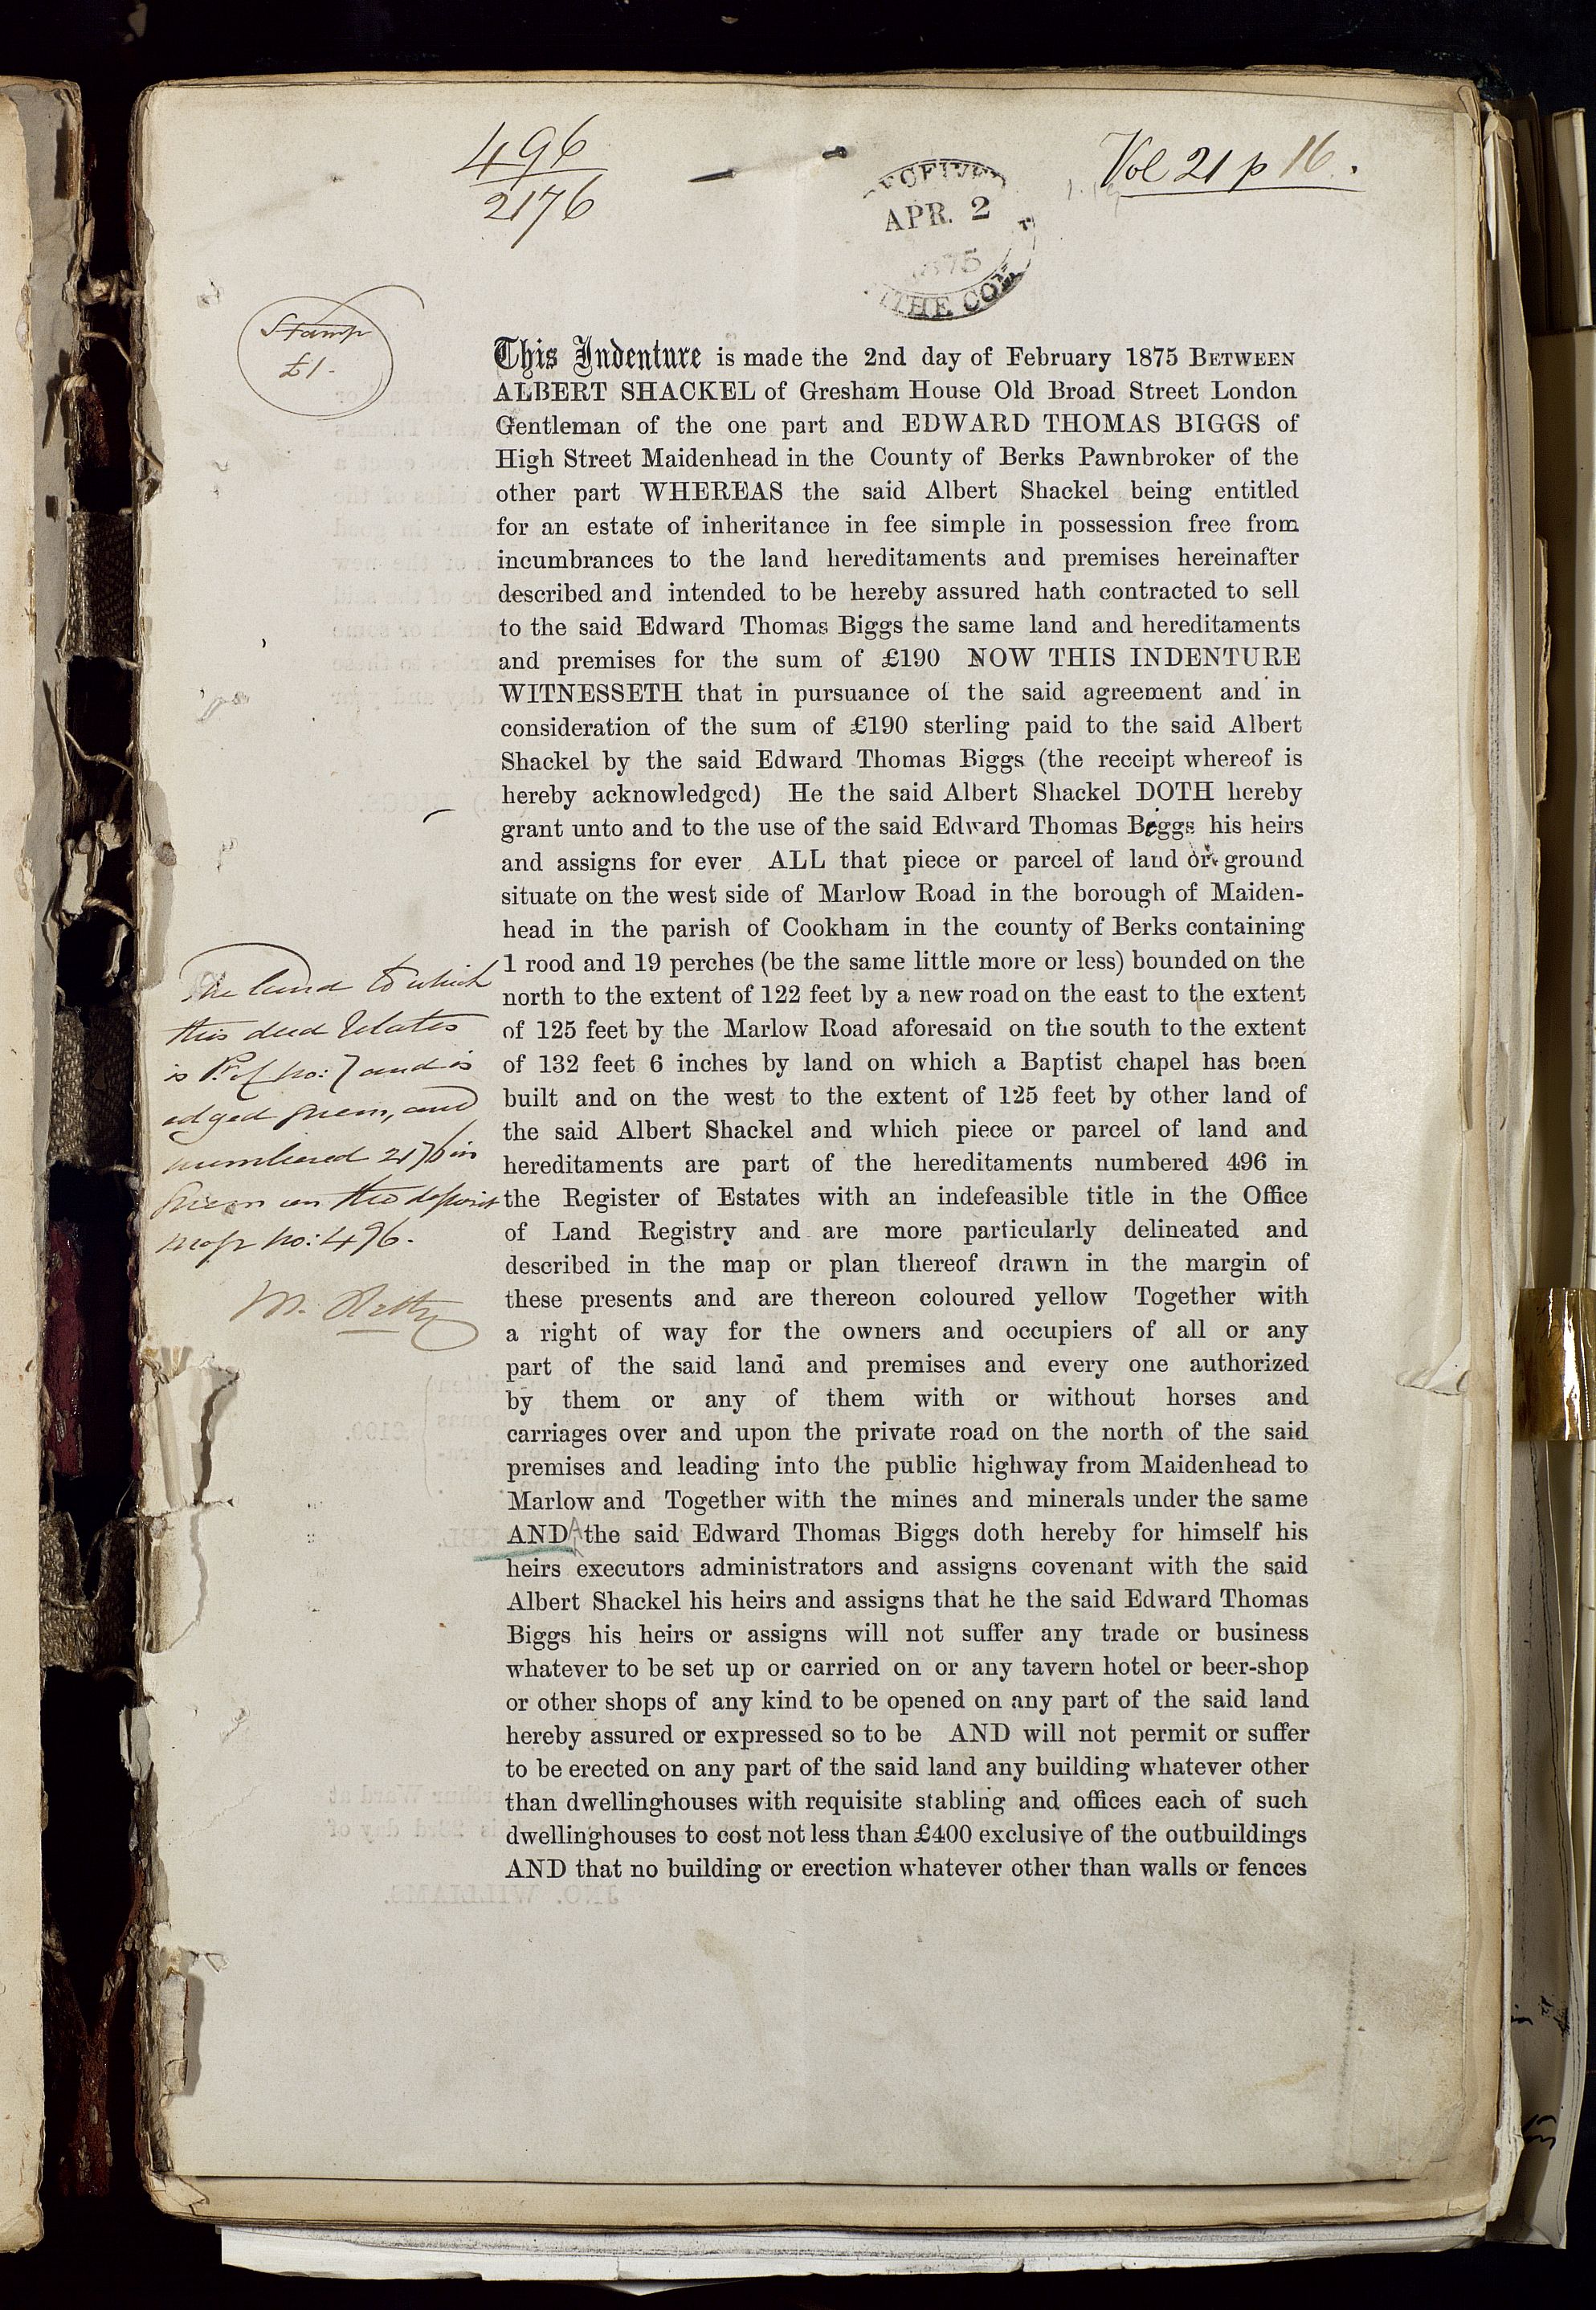 496
2176
RECEIVED
APR. 2
1875
Vol 21 p 16.
Stamp
£1.
This Indenture is made the 2nd day of February 1875 BETWEEN
ALBERT SHACKEL of Gresham House Old Broad Street London
Gentleman of the one part and EDWARD THOMAS BIGGS of
High Street Maidenhead in the County of Berks Pawnbroker of the
other part WHEREAS the said Albert Shackel being entitled
for an estate of inheritance in fee simple in possession free from
incumbrances to the land hereditaments and premises hereinafter
described and intended to be hereby assured hath contracted to sell
to the said Edward Thomas Biggs the same land and hereditaments
and premises for the sum of £190 NOW THIS INDENTURE
WITNESSETH that in pursuance of the said agreement and in
consideration of the sum of £190 sterling paid to the said Albert
Shackel by the said Edward Thomas Biggs (the receipt whereof is
hereby acknowledged) He the said Albert Shackel DOTH hereby
grant unto and to the use of the said Edward Thomas Biggs his heirs
and assigns for ever ALL that piece or parcel of land or ground
situate on the west side of Marlow Road in the borough of Maiden-
head in the parish of Cookham in the county of Berks containing
1 rood and 19 perches (be the same little more or less) bounded on the
north to the extent of 122 feet by a new road on the east to the extent
of 125 feet by the Marlow Road aforesaid on the south to the extent
of 132 feet 6 inches by land on which a Baptist chapel has been
built and on the west to the extent of 125 feet by other land of
the said Albert Shackel and which piece or parcel of land and
hereditaments are part of the hereditaments numbered 496 in
the Register of Estates with an indefeasible title in the Office
of Land Registry and are more particularly delineated and
described in the map or plan thereof drawn in the margin of
these presents and are thereon coloured yellow Together with
a right of way for the owners and occupiers of all or any
part of the said land and premises and every one authorized
by them or any of them with or without horses and
carriages over and upon the private road on the north of the said
premises and leading into the public highway from Maidenhead to
Marlow and Together with the mines and minerals under the same
AND the said Edward Thomas Biggs doth hereby for himself his
heirs executors administrators and assigns covenant with the said
Albert Shackel his heirs and assigns that he the said Edward Thomas
Biggs his heirs or assigns will not suffer any trade or business
whatever to be set up or carried on or any tavern hotel or beer-shop
or other shops of any kind to be opened on any part of the said land
hereby assured or expressed so to be AND will not permit or suffer
to be erected on any part of the said land any building whatever other
than dwellinghouses with requisite stabling and offices each of such
dwellinghouses to cost not less than £400 exclusive of the outbuildings
AND that no building or erection whatever other than walls or fences
The land to which
this deed relates
is Pt of no: 7 and is
edged green, and
numbered 2176 in
green on the deposit
map no: 496.